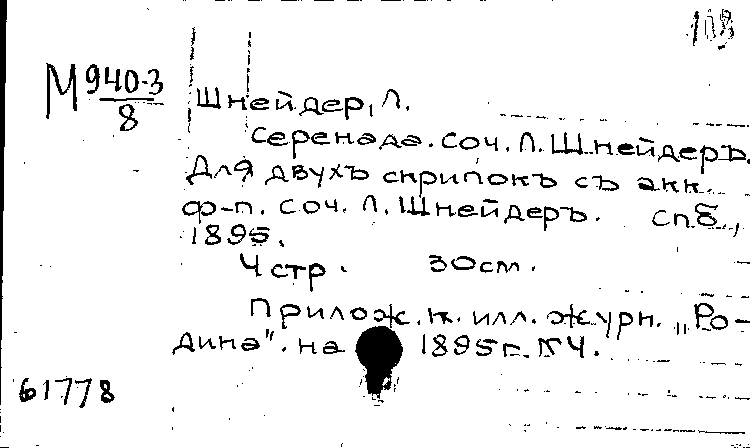 108
М 940-3
8
Шнейдер, Л.
Серенада. Соч. Л. Шнейдеръ.
Для двухъ скрипокъ съ акк.
ф-п. Соч. Л. Шнейдеръ. Спб.,
1895.
4 стр. 30см.
Прилож. к. илл. журн. „Ро-
дина". на 1895г. №4.
61778